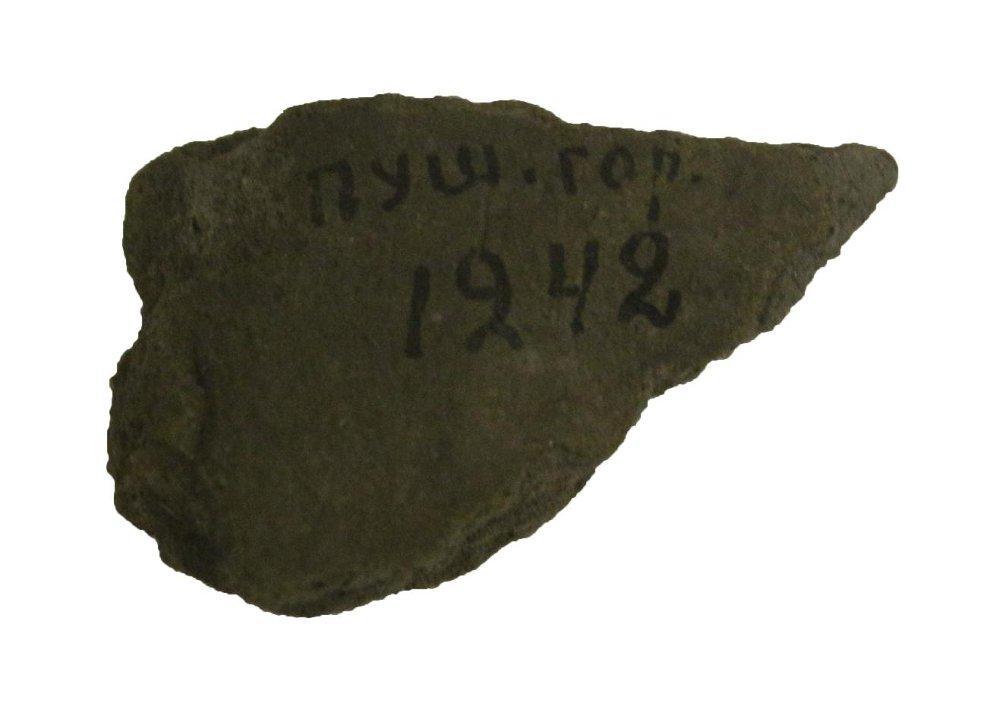 пуш.гор.
1242